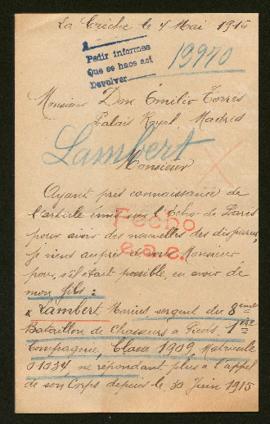 La Crèche le 4 Mai 1915
A
Pedir informes
Que se haga así
Devolver
13940
Monsieur Don Emilio Torres
Palais Royal, Madrid
Lambert
Monsieur
Ayant pris connaissance de
l'article sur l'Echo de Paris
pour avoir des nouvelles des disparus,
je viens auprès de Monsieur
pour, s'il était possible, en avoir de
mon fils :
Fecho
Lambert Marius sergent du 8eme
Bataillon de Chasseurs à Pieds, 1ere
Compagnie, Class 1909, Matricule
01334, ne répondant plus à l'appel
de son Corps depuis le 30 Juin 1915